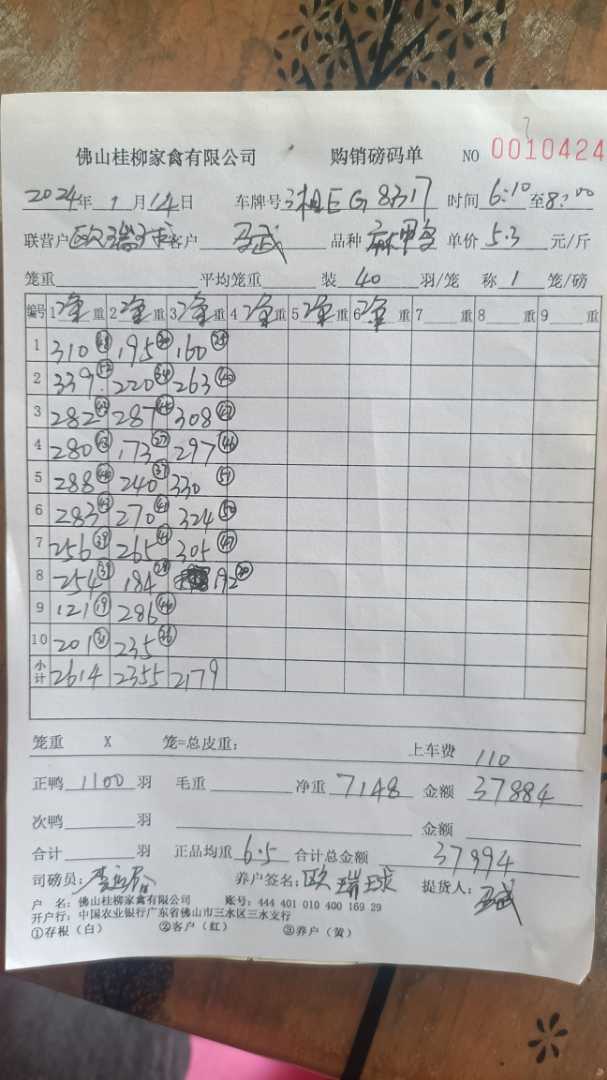 佛山桂柳家禽有限公司 购销磅码单 NO 0010424
2024年 1 月 14 日 车牌号 湘EG8317 时间 6:10 至 8:00
联营户 欧瑞球 客户 马武 品种 麻鸭 单价 5.3 元/斤
笼重 平均笼重 装 40 羽/笼 称 1 笼/磅
编号 1 净 重 2 净 重 3 净 重 4 净 重 5 净 重 6 净 重 7 重 8 重 9 重
1 310 195 160
2 339 220 263
3 282 287 308
4 280 173 297
5 288 240 330
6 283 270 324
7 256 265 305
8 254 184 192
9 121 19 286
10 201 31 235
小计 2614 2355 2179
笼重 X 笼=总皮重: 上车费 110
正鸭 1100 羽 毛重 净重 7148 金额 37884
次鸭 羽 金额
合计 羽 正品均重 6.5 合计总金额 37994
司磅员: 养户签名: 欧瑞球 提货人: 马武
户 名: 佛山桂柳家禽有限公司 账号: 444 401 010 400 169 29
开户行: 中国农业银行广东省佛山市三水区三水支行
①存根(白) ②客户(红) ③养户(黄)